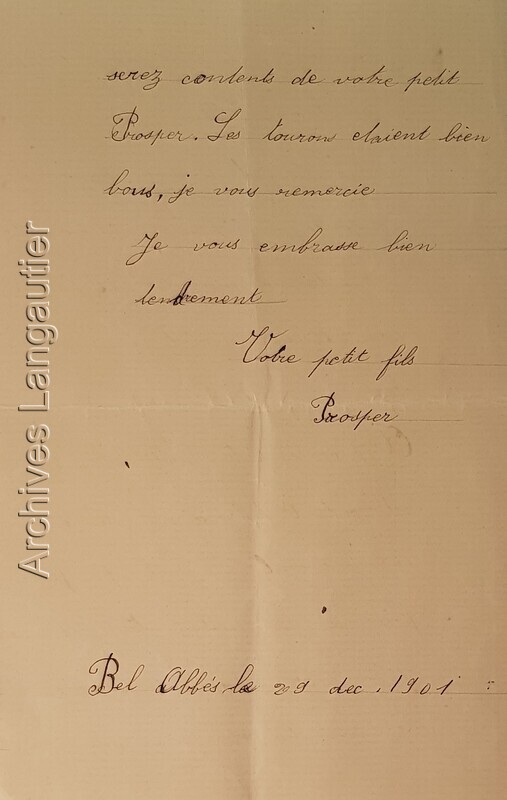 serez contents de votre petit
Prosper. Les tourons etaient bien
bons, je vous remercie
Je vous embrasse bien
tendrement
Votre petit fils
Prosper
Bel Abbés le 29 dec. 1901
Archives Langautier